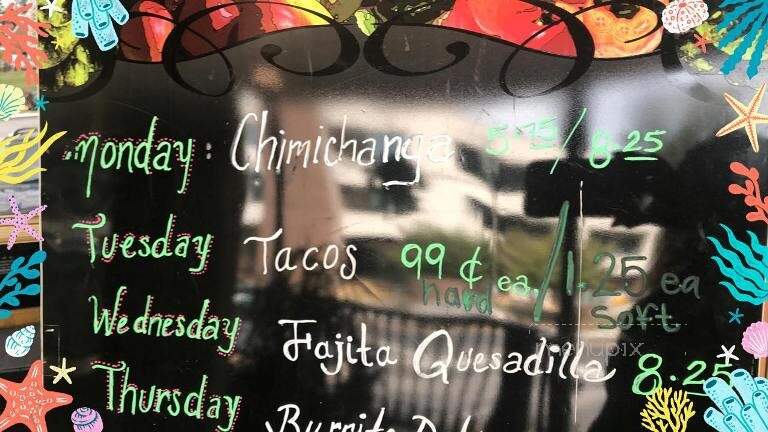 Monday: Chimichanga 5.75/8.25
Tuesday Tacos 99¢ ea./1.25 ea
hard soft
Wednesday Fajita Quesadilla 8.25
Thursday Burrito